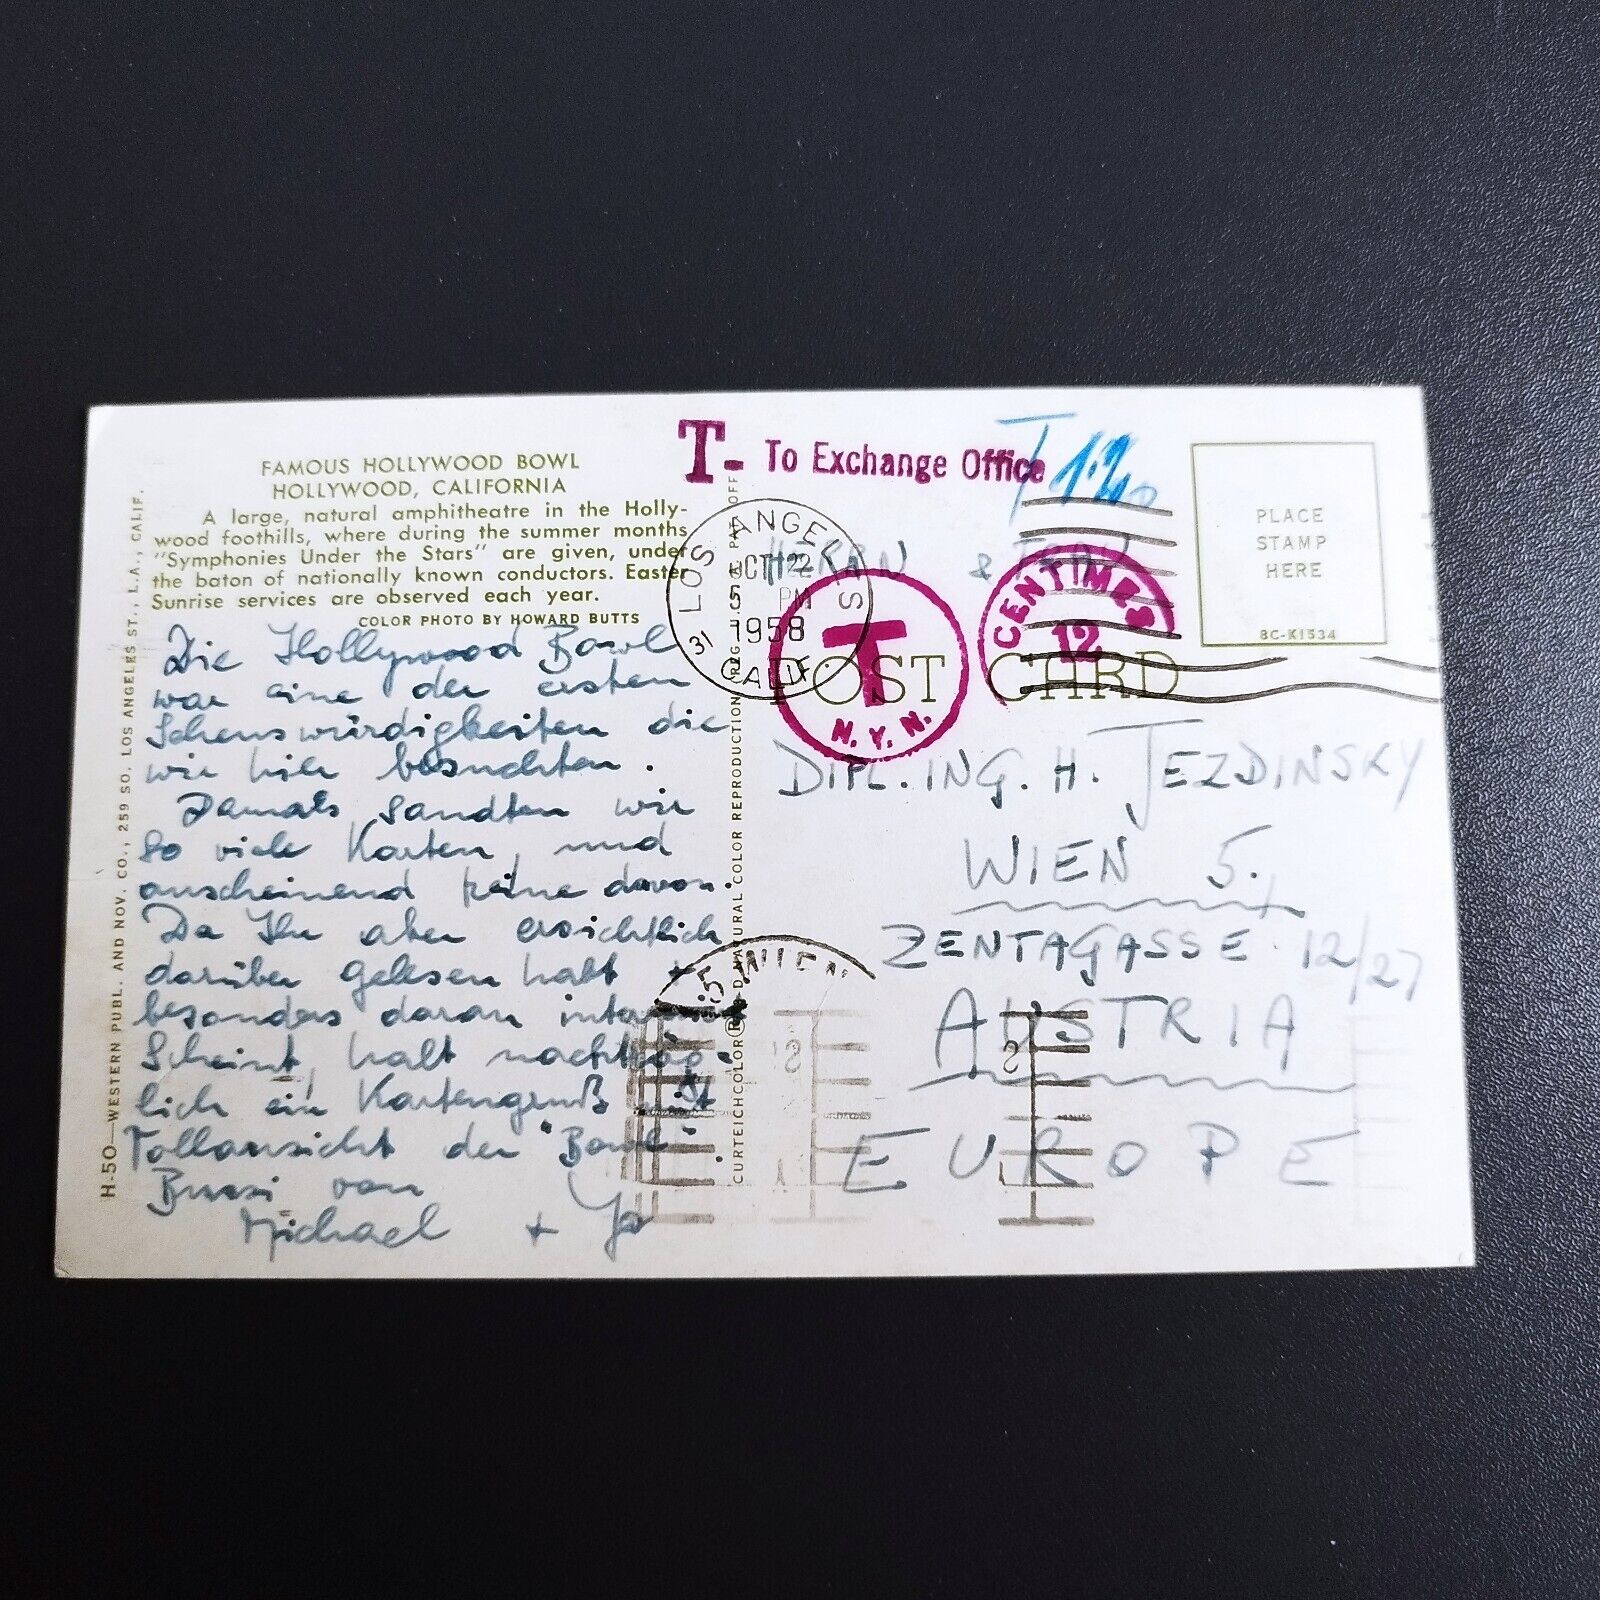 FAMOUS HOLLYWOOD BOWL
HOLLYWOOD, CALIFORNIA
A large, natural amphitheatre in the Holly-
wood foothills, where during the summer months
"Symphonies Under the Stars" are given, under
the baton of nationally known conductors. Easter
Sunrise services are observed each year.
COLOR PHOTO BY HOWARD BUTTS
Die Hollywood Bowl
war eine der ersten
Sehenswürdigkeiten die
wir hier besuchten.
Damals sandten wir
so viele Karten, und
anscheinend keine davon.
Da Ihr aber ersichtlich
darüber gelesen habt +
besonders daran interessiert
scheint, halt nachträg-
lich ein Kartengruß mit
Tollansicht der "Bowl".
Bussi von
Michael +
H-50—WESTERN PUBL. AND NOV. CO., 259 SO. LOS ANGELES ST., L.A., CALIF.
CURTEICHCOLOR® 3-D NATURAL COLOR REPRODUCTION
T- To Exchange Office
T 1.20
LOS ANGELES
OCT 22
5 PM
1958
CALIF.
31
T
N.Y.N.
CENTIMES
12
PLACE
STAMP
HERE
8C-K1534
POST CARD
HERRN & FRAU
DIPL. ING. H. JEZDINSKY
WIEN 5.
ZENTAGASSE 12/27
AUSTRIA
EUROPE
5 WIEN